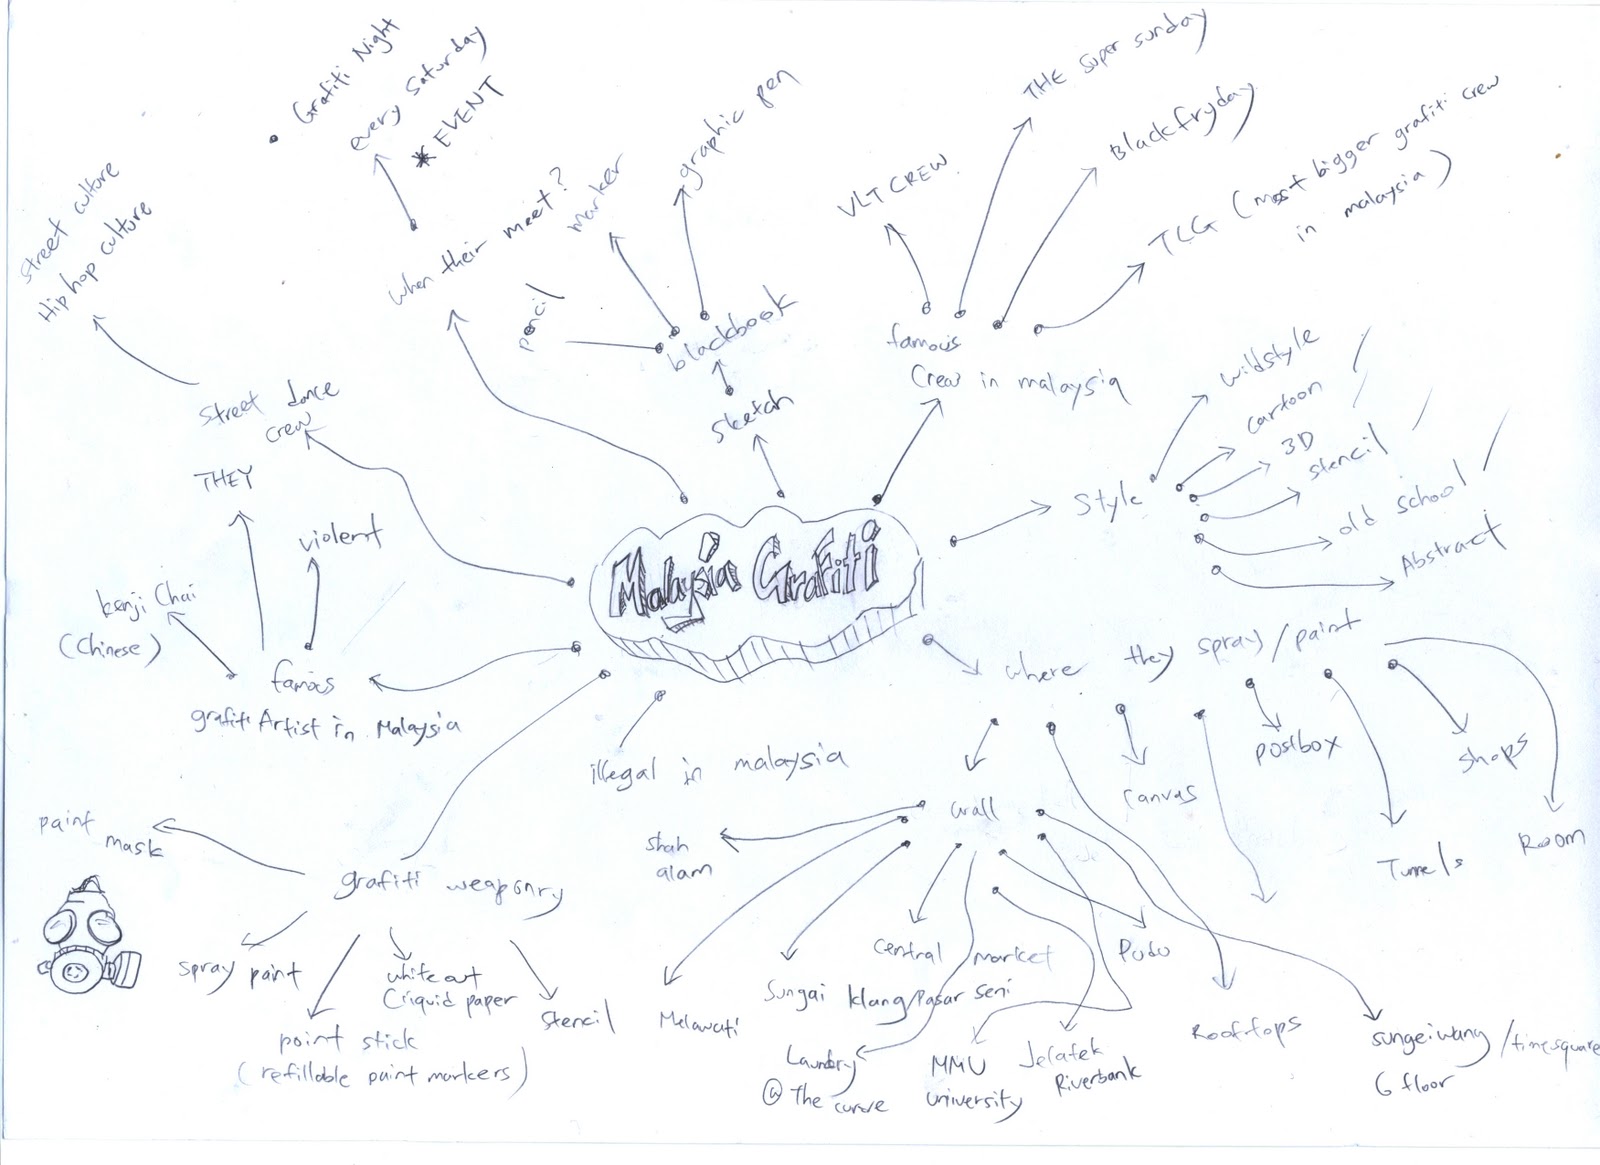 Malaysia Grafiti
• Grafiti Night
every Saturday
* EVENT
when their meet?
street culture
Hip hop culture
street dance
crew
THEY
violent
kenji Chai
(Chinese)
famous
grafiti Artist in Malaysia
pencil
marker
graphic pen
blackbook
sketch
VLT CREW
THE super sunday
Blackfryday
TLG (most bigger grafiti crew
in malaysia)
famous
Crew in malaysia
Style
wildstyle
cartoon
3D
stencil
old school
Abstract
where they spray/paint
wall
canvas
postbox
shops
Tunnels
Room
Rooftops
sungeiwang/timesquare
6 floor
shah
alam
Melawati
Sungai klang/Pasar seni
central market
Pudu
Laundry
@ The curve
MMU
university
Jelatek
Riverbank
illegal in malaysia
grafiti weaponry
paint
mask
spray paint
point stick
(refillable paint markers)
white out
Criquid paper
stencil